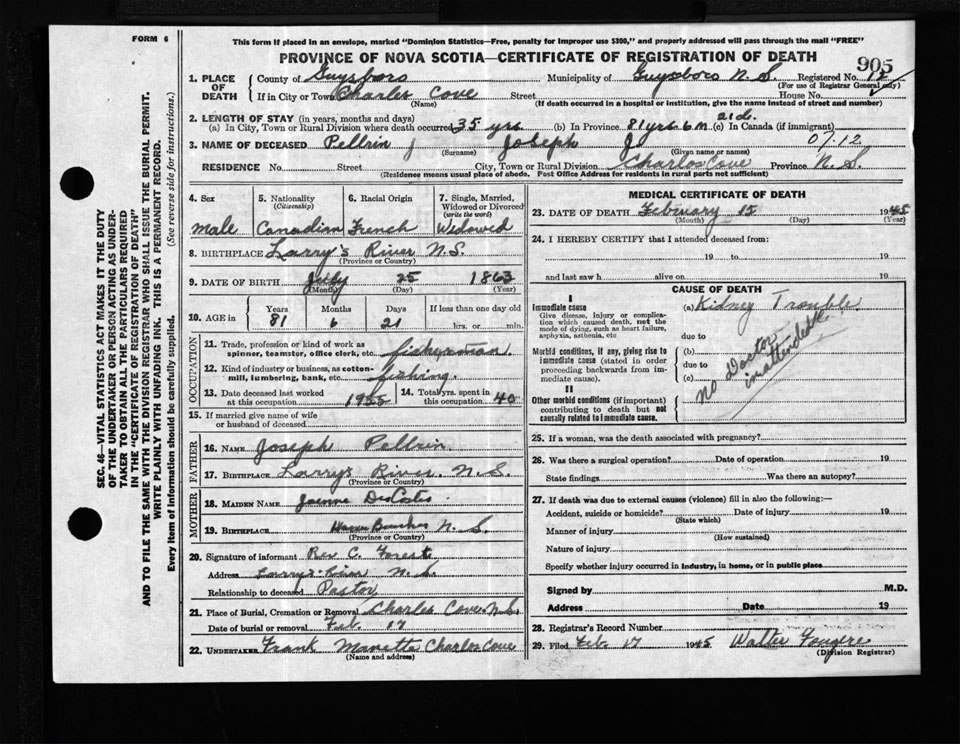 FORM 6
This form if placed in an envelope, marked "Dominion Statistics—Free, penalty for improper use $300," and properly addressed will pass through the mail "FREE"
PROVINCE OF NOVA SCOTIA—CERTIFICATE OF REGISTRATION OF DEATH
905
1. PLACE OF DEATH County of Guysboro Municipality of Guysboro N.S. Registered No. 12
(For use of Registrar General only)
If in City or Town Charlos Cove Street House No.
(Name) (If death occurred in a hospital or institution, give the name instead of street and number)
2. LENGTH OF STAY (in years, months and days)
(a) In City, Town or Rural Division where death occurred 35 yrs. (b) In Province 81 yrs 6 m 21 d. (c) In Canada (if immigrant)
3. NAME OF DECEASED Pellrin J Joseph J 07.12
(Surname) (Given name or names)
RESIDENCE No. Street City, Town or Rural Division Charlos Cove Province N.S.
(Residence means usual place of abode. Post Office Address for residents in rural parts not sufficient)
4. Sex 5. Nationality (Citizenship) 6. Racial Origin 7. Single, Married, Widowed or Divorced (write the word)
Male Canadian French Widowed
8. BIRTHPLACE Larry's River N.S.
(Province or Country)
9. DATE OF BIRTH July 25 1863
(Month) (Day) (Year)
10. AGE in Years Months Days If less than one day old
81 6 21 hrs. or min.
OCCUPATION
11. Trade, profession or kind of work as spinner, teamster, office clerk, etc. fisherman.
12. Kind of industry or business, as cotton-mill, lumbering, bank, etc. fishing.
13. Date deceased last worked at this occupation 14. Total yrs. spent in this occupation 40
15. If married give name of wife or husband of deceased
FATHER
16. NAME Joseph Pellrin
17. BIRTHPLACE Larrys River. N.S.
(Province or Country)
MOTHER
18. MAIDEN NAME
19. BIRTHPLACE N.S.
(Province or Country)
20. Signature of informant Rev C. Forest
Address Larrys River N.S.
Relationship to deceased Pastor
21. Place of Burial, Cremation or Removal Charlos Cove N.S.
Date of burial or removal Feb. 17
22. UNDERTAKER Frank Manette Charlos Cove
(Name and address)
MEDICAL CERTIFICATE OF DEATH
23. DATE OF DEATH February 15 1945
(Month) (Day) (Year)
24. I HEREBY CERTIFY that I attended deceased from:
19 to 19
and last saw h alive on 19
CAUSE OF DEATH
I
Immediate cause (a) Kidney Trouble
Give disease, injury or complication which caused death, not the mode of dying, such as heart failure, asphyxia, asthenia, etc
due to
Morbid conditions, if any, giving rise to immediate cause (stated in order proceeding backwards from immediate cause).
(b)
due to
(c)
No Doctor in attendance
II
Other morbid conditions (if important) contributing to death but not causally related to immediate cause.
25. If a woman, was the death associated with pregnancy?
26. Was there a surgical operation? Date of operation 19
State findings Was there an autopsy?
27. If death was due to external causes (violence) fill in also the following:—
Accident, suicide or homicide? Date of injury 19
(State which)
Manner of injury
(How sustained)
Nature of injury
Specify whether injury occurred in industry, in home, or in public place
Signed by M.D.
Address Date 19
28. Registrar's Record Number
29. Filed Feb. 17 1945 Walter Fougere
(Division Registrar)
SEC. 46—VITAL STATISTICS ACT MAKES IT THE DUTY
OF THE UNDERTAKER OR PERSON ACTING AS UNDER-
TAKER TO OBTAIN ALL THE PARTICULARS REQUIRED
IN THE "CERTIFICATE OF REGISTRATION OF DEATH"
AND TO FILE THE SAME WITH THE DIVISION REGISTRAR WHO SHALL ISSUE THE BURIAL PERMIT.
WRITE PLAINLY WITH UNFADING INK. THIS IS A PERMANENT RECORD.
Every item of information should be carefully supplied. (See reverse side for instructions.)